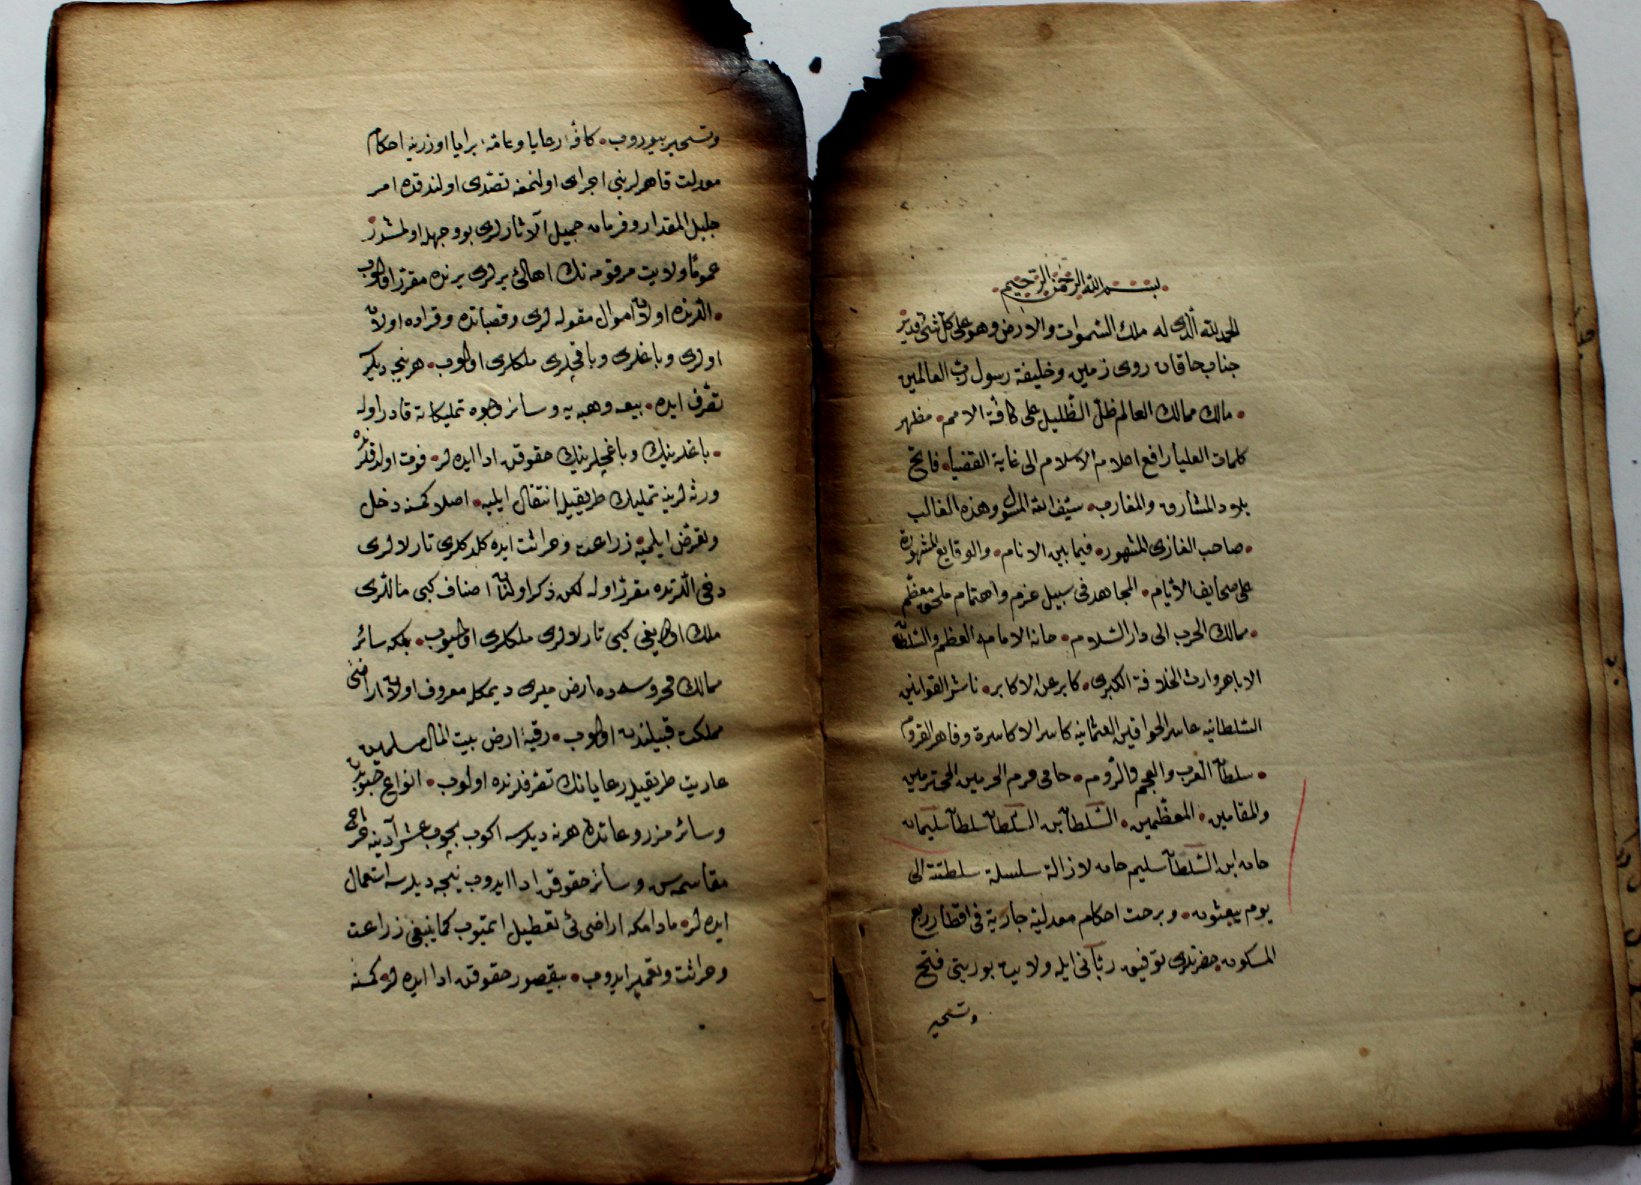 بسم الله الرحمن الرحيم
الحمد لله الذى له ملك السموات والارض وهو على كل شئ قدير
جناب خاقان روى زمين وخليفة رسول رب العالمين
مالك ممالك العالم ظل الله الظليل على كافة الامم مظهر
كلمات العليا رافع اعلام الاسلام الى غاية القضيا فاتح
بلاد المشارق والمغارب سيف الله المسلول وهذه الغالب
صاحب المغازى المشهور فيما بين الانام والوقايع المشهورة
على صحايف الايام المجاهد فى سبيل عزم واهتمام ملحق معظم
ممالك الحرب الى دار السلام الامامه العظم والسلطان
الاباهر وارث الخلافة الكبرى كابر عن الاكابر ناشر القوانين
السلطانيه عاشر الخواقين العثمانيه كاسر الاكاسرة وقاهر القروم
سلطان العرب والعجم والروم حامى حرم الحرمين المحترمين
والمقامين المعظمين السلطان بن السلطان سلطان سليمان
خان ابن السلطان سليم خان لا زالة سلسلة سلطنته الى
يوم يبعثون وبرحت احكام معدلته جارية فى اقطار ربع
المسكون حضرتلرى توفيق ربانى ايله ولايت بوريتى فتح
وتسخير
وتسخير بيوروب كافه رعايا وعامه برايا اوزرينه احكام
معدلت قاهرلرينى اجراى اولنمغه تصدى اولندقده امر
جليل المقدار وفرمان جميل الآثارلرى بو وجهله اولمشدر
عموما ولايت مرقومه نك اهالئ يرلرى يرنده مقرر اولوب
اللرنده اولان اموال مقوله لرى وقصباتده وقراده اولان
اولرى وباغلرى وباغچه لرى ملكلرى اولوب هر نيجه ديلر
تصرف ايده بيعه وهبه يه وسائر وجوه تمليكاته قادر اوله
باغلرينك وباغچه لرينك حقوقن ادا ايده لر فوت اولدقلرنده
ورثه لرينه تمليك طريقيله انتقال ايليه اصلا كمسنه دخل
وتعرض ايلميه زراعت وحراثت ايده كلدكلرى تارلالرى
دخى اللرنده مقرر اوله لكن ذكر اولنان اصناف كبى ماللرى
ملك اولديغى كبى تارلالرى ملكلرى اولميوب بلكه سائر
ممالك محروسه ده ارض ميرى ديمكله معروف اولان اراضئ
مملكت قبيلندن اولوب رقبه ارض بيت المال مسلمين
عاريت طريقيله رعايانك تصرفلرنده اولوب انواع حبوبدن
وسائر مزروعاتدن هر نه ديلرسه اكوب بچوب عشر آدينه خراج
مقاسمه سن وسائر حقوقن ادا ايدوب نيجه ديلرسه استعمال
ايده لر مادامكه اراضى ئى تعطيل ايتميوب كما ينبغى زراعت
وحراثت وتعمير ايدوب بيقصور حقوقن ادا ايده لر كمسنه